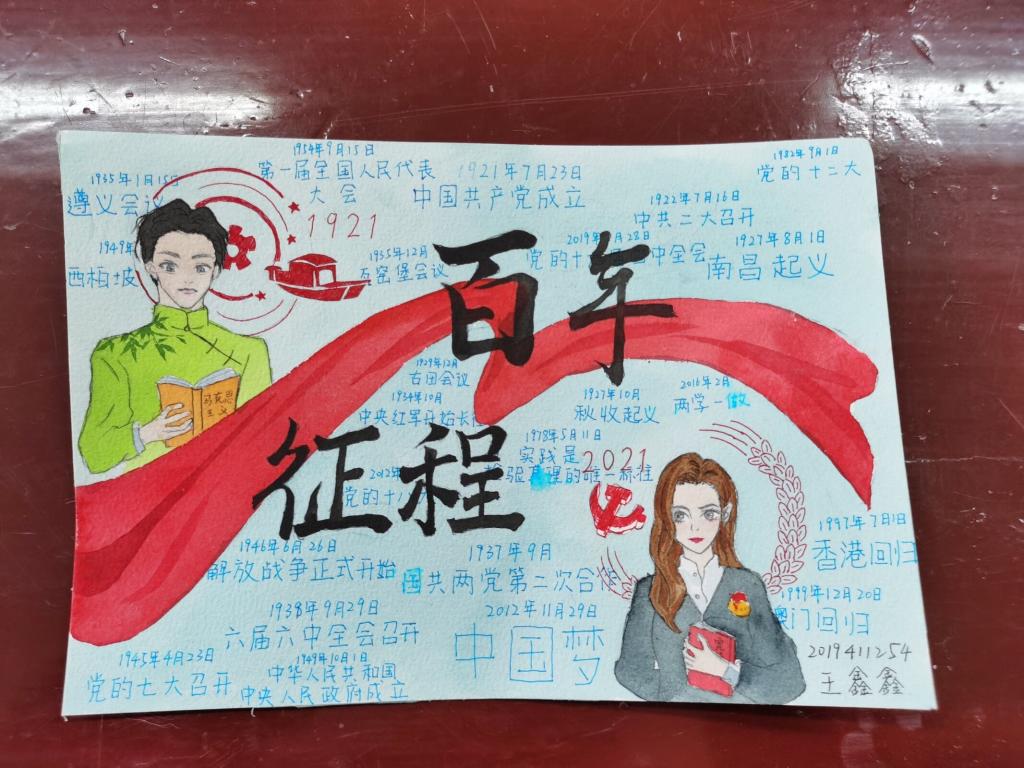 1954年9月15日
第一届全国人民代表
大会
1921年7月23日
中国共产党成立
1982年9月1日
党的十二大
1935年1月15日
遵义会议
1921
1922年7月16日
中共二大召开
1949年
西柏坡
1935年12月
瓦窑堡会议
2019年 月28日
党的十 中全会
1927年8月1日
南昌起义
百年
1929年12月
古田会议
1934年10月
中央红军开始长征
1927年10月
秋收起义
2016年2月
两学一做
马克思
主义
征程
1978年5月11日
实践是
检验真理的唯一标准
2021
2012年
党的十八大
1946年6月26日
解放战争正式开始
1937年9月
国共两党第二次合作
1997年7月1日
香港回归
1938年9月29日
六届六中全会召开
2012年11月29日
中国梦
1999年12月20日
澳门回归
1945年4月23日
党的七大召开
1949年10月1日
中华人民共和国
中央人民政府成立
2019411254
王鑫鑫